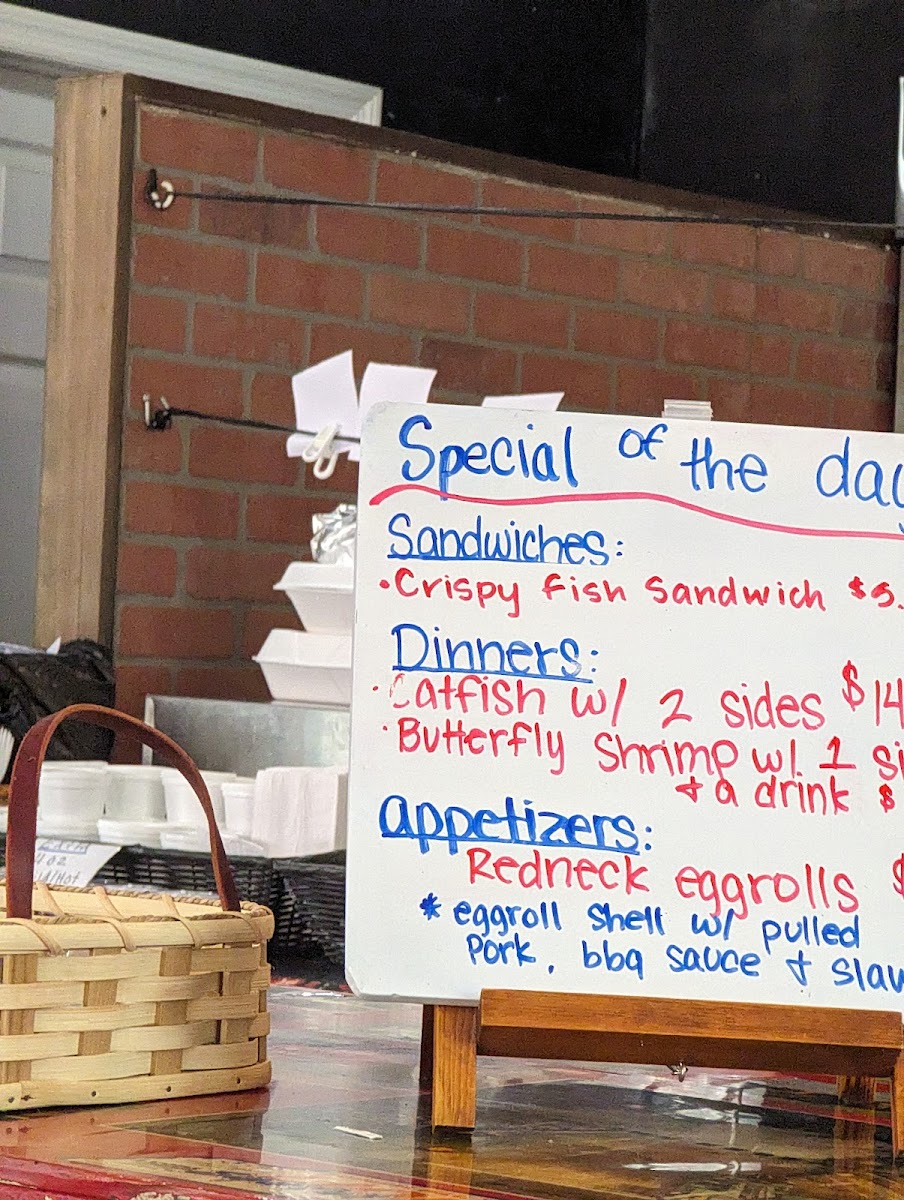 Special of the day
Sandwiches:
• Crispy Fish Sandwich $5.
Dinners:
• Catfish w/ 2 sides $14
• Butterfly Shrimp w/ 1 si
+ a drink $
appetizers:
Redneck eggrolls $
* eggroll shell w/ pulled
Pork, bbq sauce + slaw
oz
/Hot